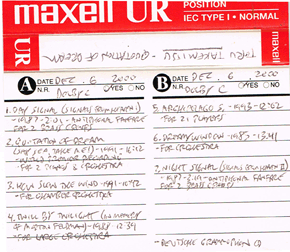 maxell UR POSITION
IEC TYPE I • NORMAL
UR TORU TAKEMITSU - QUOTATION OF DREAM
A DATE DEC. 6 2000
N.R. DOLBY C YES NO
1. DAY SIGNAL (SIGNALS FROM HEAVEN I)
- 1987 - 2:01 - ANTIPHONAL FANFARE
FOR 2 BRASS GROUPS
2. QUOTATION OF DREAM
(SAY SEA, TAKE ME!) - 1991 -
- WORLD PREMIERE RECORDING
- FOR 2 PIANOS & ORCHESTRA
3. HOW SLOW THE WIND - 1991 -
- FOR CHAMBER ORCHESTRA
4. TWILL BY TWILIGHT (IN MEMORY
OF MORTON FELDMAN) - 1988 - 12:39
- FOR LARGE ORCHESTRA
B DATE DEC. 6 2000
N.R. DOLBY C YES NO
5. ARCHIPELAGO S. - 1993 -
FOR 21 PLAYERS
6. DREAM/WINDOW - 1985 -
7. NIGHT SIGNAL (SIGNALS FROM HEAVEN II)
- 1987 - ANTIPHONAL FANFARE
FOR 2 BRASS GROUPS
- DEUTSCHE GRAMMOPHON CD